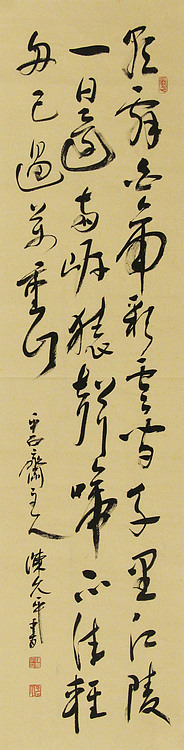 朝辭白帝彩雲間千里江陵
一日還兩岸猿聲啼不住輕
舟已過萬重山
齋主人陳允平書